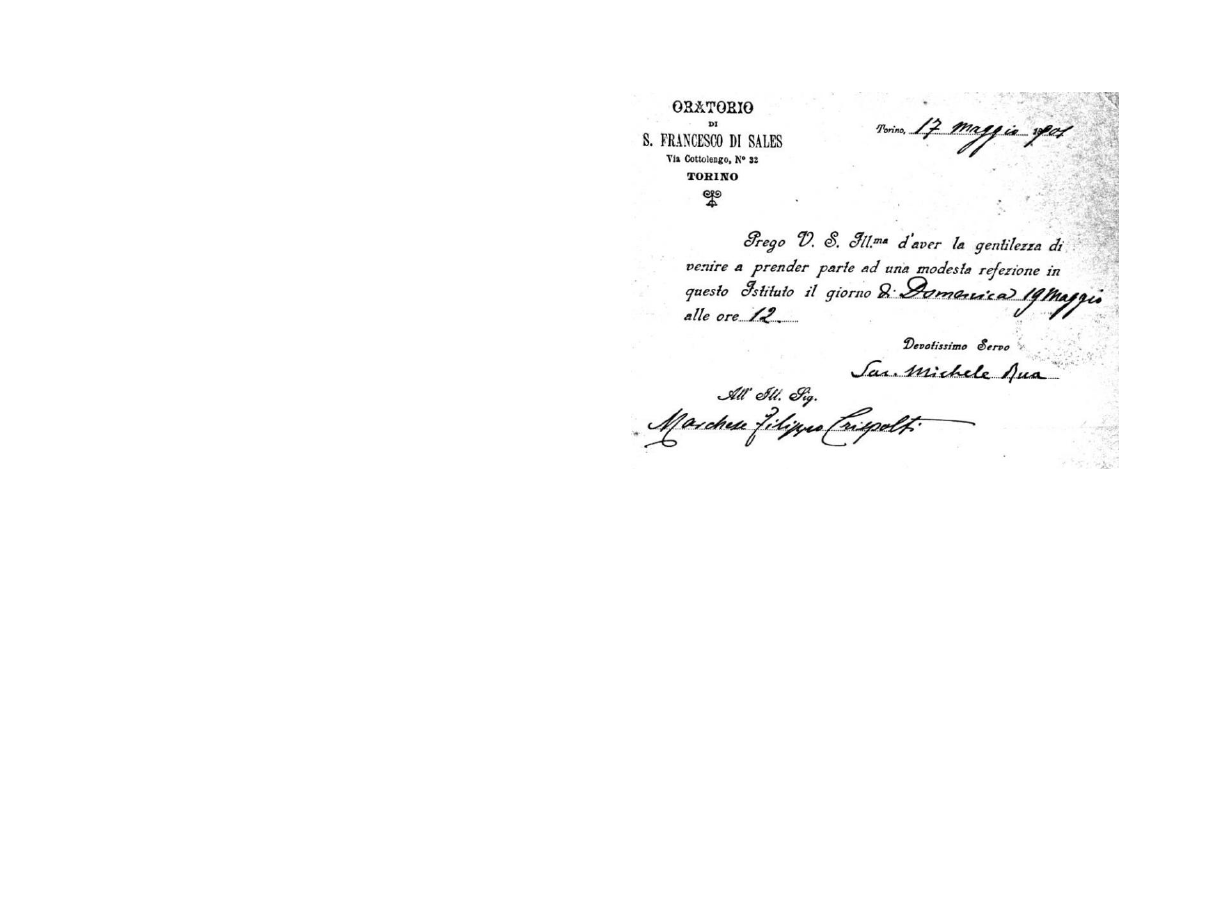 ORATORIO
DI
S. FRANCESCO DI SALES
Via Cottolengo, N° 32
TORINO
Torino, 17 Maggio 1901
Prego V. S. Ill.ma d'aver la gentilezza di
venire a prender parte ad una modesta refezione in
questo Istituto il giorno di Domenica 19 Maggio
alle ore 12
Devotissimo Servo
Sac. Michele Rua
All' Ill. Sig.
Marchese Filippo Crispolti